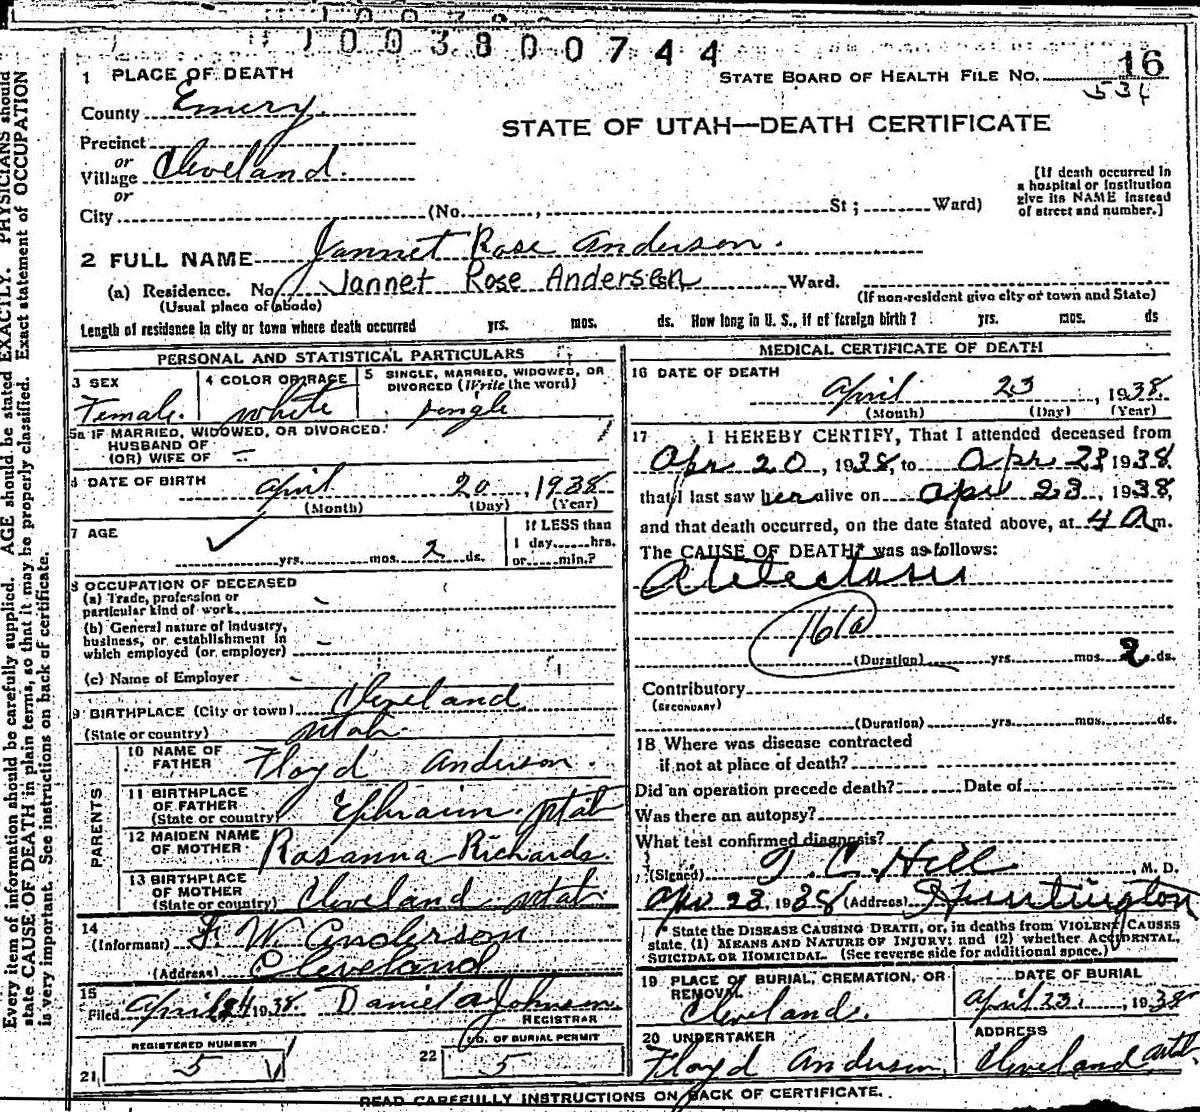 1003800744
1 PLACE OF DEATH
STATE BOARD OF HEALTH FILE NO. 16
534
County Emery
STATE OF UTAH—DEATH CERTIFICATE
Precinct
or
Village Cleveland.
or
City (No. , St ; Ward)
[If death occurred in
a hospital or institution
give its NAME instead
of street and number.]
2 FULL NAME Jannet Rose Anderson.
(a) Residence. No. Jannet Rose Andersen Ward.
(Usual place of abode)
(If non-resident give city or town and State)
Length of residence in city or town where death occurred yrs. mos. ds. How long in U. S., if of foreign birth ? yrs. mos. ds
PERSONAL AND STATISTICAL PARTICULARS
3 SEX
Female.
4 COLOR OR RACE
white
5 SINGLE, MARRIED, WIDOWED, OR
DIVORCED (Write the word)
single
5a IF MARRIED, WIDOWED, OR DIVORCED
HUSBAND OF
(OR) WIFE OF
6 DATE OF BIRTH April 20, 1938
(Month) (Day) (Year)
7 AGE
yrs. mos. 2 ds.
If LESS than
1 day hrs.
or min.?
8 OCCUPATION OF DECEASED
(a) Trade, profession or
particular kind of work
(b) General nature of Industry,
business, or establishment in
which employed (or employer)
(c) Name of Employer
9 BIRTHPLACE (City or town) Cleveland
(State or country) Utah.
PARENTS
10 NAME OF
FATHER Floyd Anderson.
11 BIRTHPLACE
OF FATHER
(State or country) Ephraim Utah
12 MAIDEN NAME
OF MOTHER Rosanna Richards.
13 BIRTHPLACE
OF MOTHER
(State or country) Cleveland Utah.
14
(Informant) F. W. Anderson
(Address) Cleveland
15
Filed April 24 1938 Daniel A Johnson
REGISTRAR
REGISTERED NUMBER
21 5
NO. OF BURIAL PERMIT
22 5
MEDICAL CERTIFICATE OF DEATH
16 DATE OF DEATH
April 23, 1938
(Month) (Day) (Year)
17 I HEREBY CERTIFY, That I attended deceased from
Apr 20, 1938, to Apr 23 1938
that I last saw her alive on Apr 23, 1938,
and that death occurred, on the date stated above, at 4 A m.
The CAUSE OF DEATH* was as follows:
Atelectasis
161a
(Duration) yrs. mos. 2 ds.
Contributory
(SECONDARY)
(Duration) yrs. mos. ds.
18 Where was disease contracted
if not at place of death?
Did an operation precede death? Date of
Was there an autopsy?
What test confirmed diagnosis?
(Signed) T. C. Hill, M. D.
Apr 23, 1938 (Address) Huntington
*State the DISEASE CAUSING DEATH, or, in deaths from VIOLENT CAUSES
state (1) MEANS AND NATURE OF INJURY; and (2) whether ACCIDENTAL,
SUICIDAL OR HOMICIDAL. (See reverse side for additional space.)
19 PLACE OF BURIAL, CREMATION, OR
REMOVAL
Cleveland.
DATE OF BURIAL
April 23, 1938
20 UNDERTAKER
Floyd Anderson
ADDRESS
Cleveland Utah
READ CAREFULLY INSTRUCTIONS ON BACK OF CERTIFICATE.
Every item of information should be carefully supplied. AGE should be stated EXACTLY. PHYSICIANS should
state CAUSE OF DEATH in plain terms, so that it may be properly classified. Exact statement of OCCUPATION
is very important. See instructions on back of certificate.